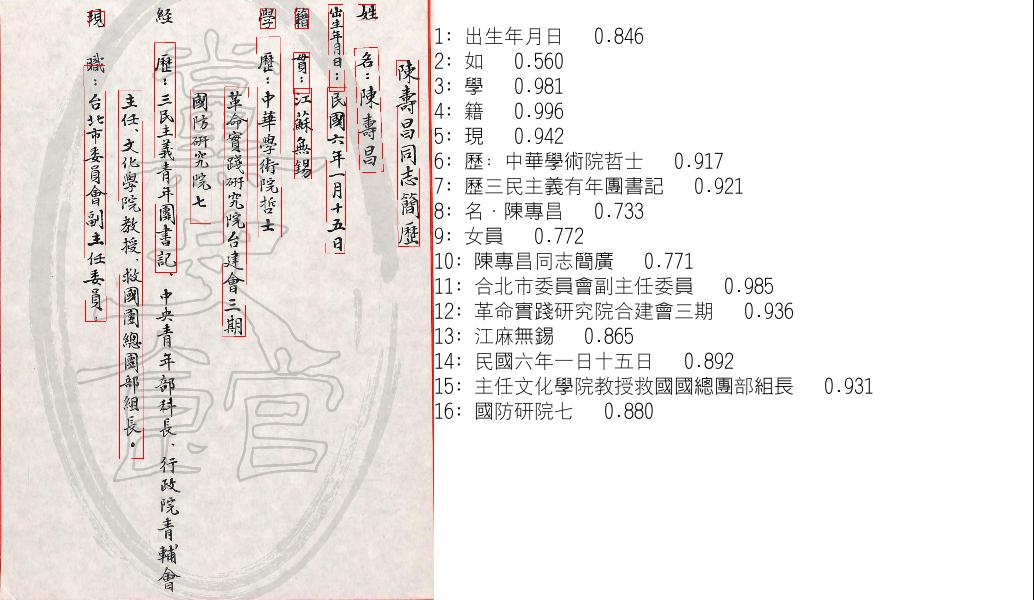 陳壽昌同志簡歷
姓 名：陳壽昌
出生年月日：民國六年一月十五日
籍 貫：江蘇無錫
學 歷：中華學術院哲士
革命實踐研究院台建會三期
國防研究院七
經 歷：三民主義青年團書記、中央青年部科長、行政院青輔會
主任、文化學院教授、救國團總團部組長。
現 職：台北市委員會副主任委員。
1: 出生年月日 0.846
2: 如 0.560
3: 學 0.981
4: 籍 0.996
5: 現 0.942
6: 歷：中華學術院哲士 0.917
7: 歷三民主義有年團書記 0.921
8: 名·陳專昌 0.733
9: 女員 0.772
10: 陳專昌同志簡廣 0.771
11: 合北市委員會副主任委員 0.985
12: 革命實踐研究院合建會三期 0.936
13: 江麻無錫 0.865
14: 民國六年一日十五日 0.892
15: 主任文化學院教授救國國總團部組長 0.931
16: 國防研院七 0.880